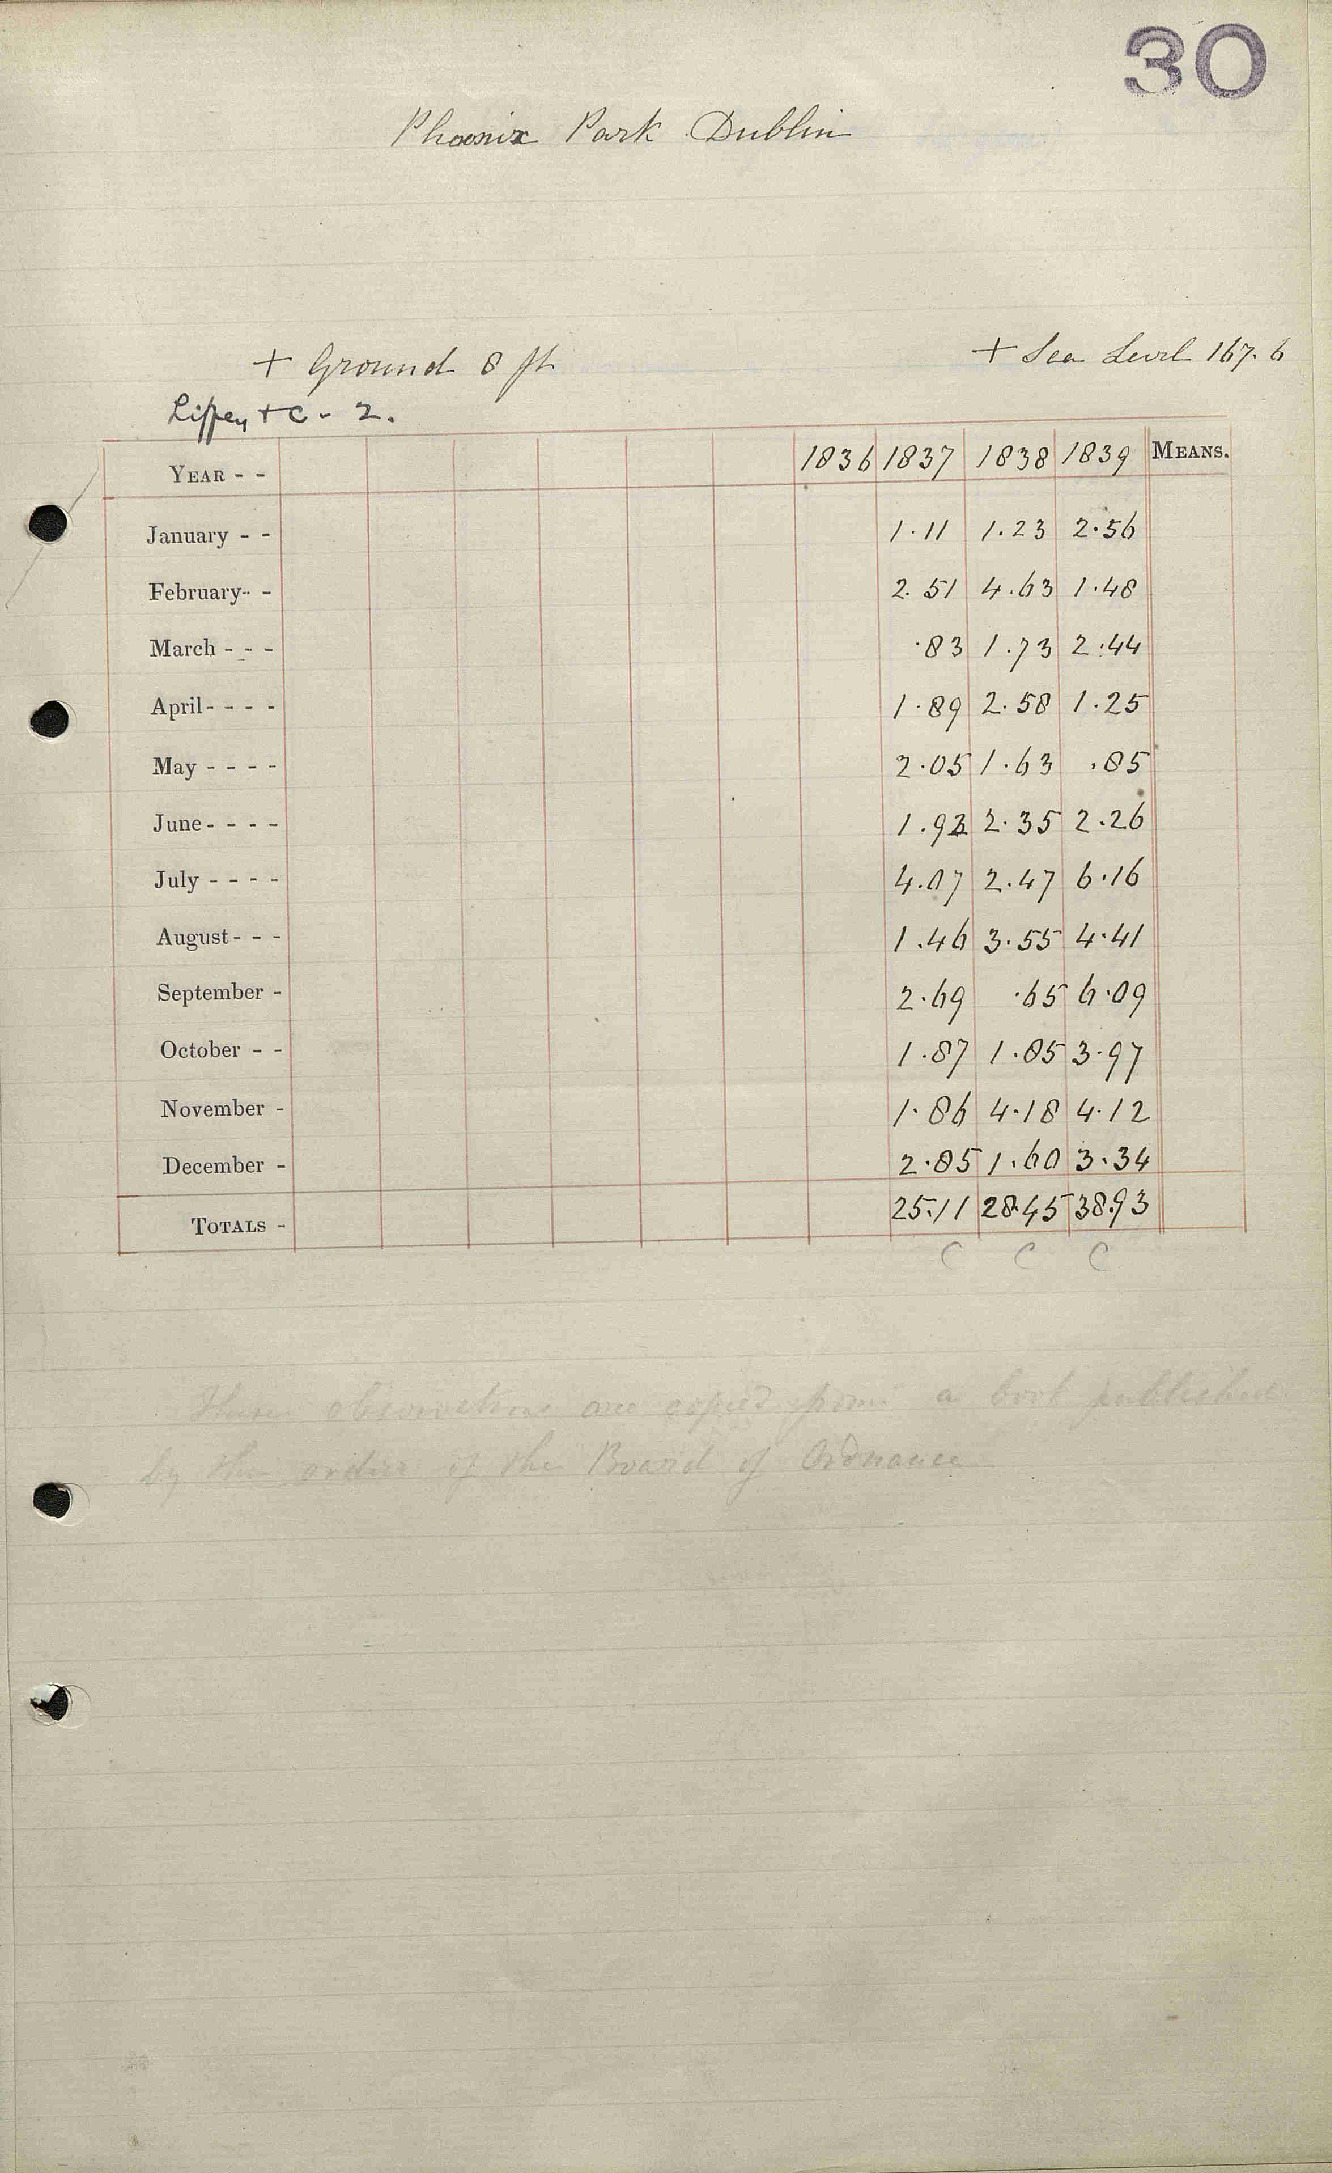 30
Phoenix Park Dublin
+ Ground 8 ft
+ Sea Level 167.6
Liffey + C - 2.
YEAR - - 1836 1837 1838 1839 MEANS.
January - - 1.11 1.23 2.56
February - - 2.51 4.63 1.48
March - - - .83 1.73 2.44
April - - - - 1.89 2.58 1.25
May - - - - 2.05 1.63 .85
June - - - - 1.92 2.35 2.26
July - - - - 4.07 2.47 6.16
August - - - 1.46 3.55 4.41
September - 2.69 .65 6.09
October - - 1.87 1.85 3.97
November - 1.86 4.18 4.12
December - 2.85 1.60 3.34
TOTALS - 25.11 28.45 38.93
C C C
These observations are copied from a book published
by the orders of the Board of Ordnance